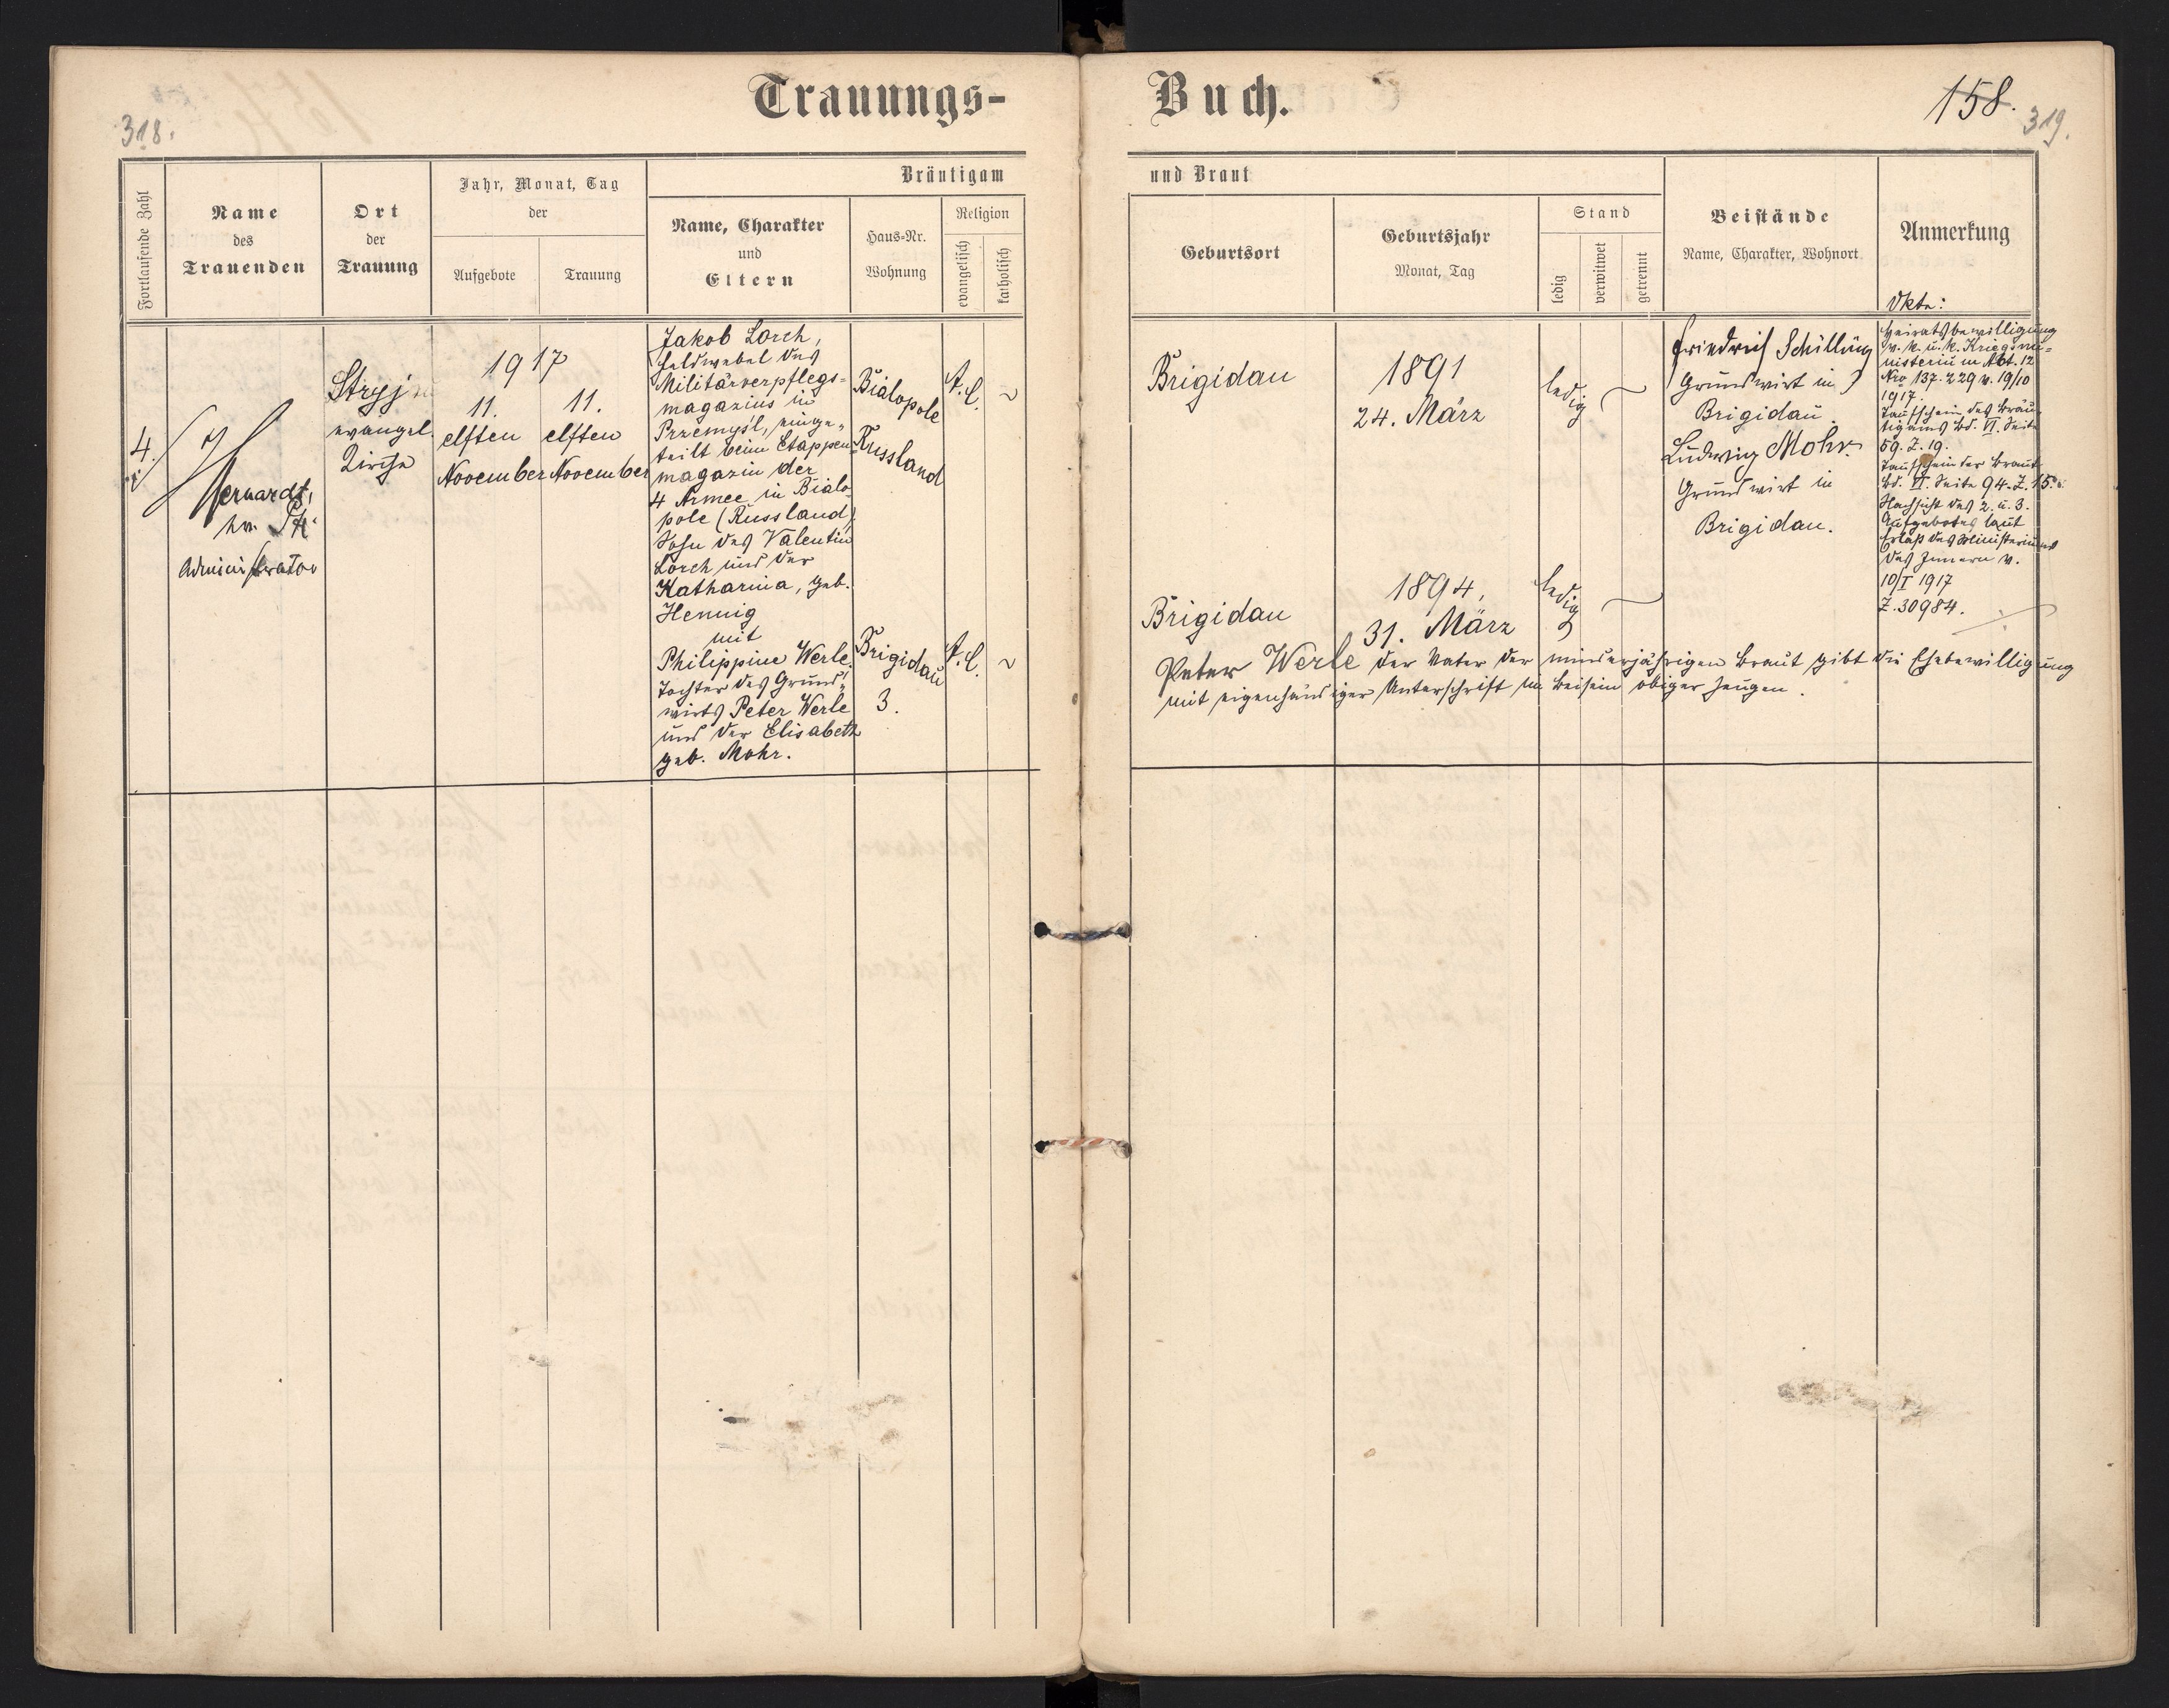 318.
Trauungs-
Buch.
158.
319.
Fortlaufende Zahl
Name
des
Trauenden
Ort
der
Trauung
Jahr, Monat, Tag
der
Aufgebote
Trauung
Bräutigam
Name, Charakter
und
Eltern
Haus-Nr.
Wohnung
Religion
evangelisch
katholisch
und Braut
Geburtsort
Geburtsjahr
Monat, Tag
Stand
ledig
verwitwet
getrennt
Beistände
Name, Charakter, Wohnort
Anmerkung
4.
Administrator
Stryj
evangel.
Kirche
1917
11.
elften
November
11.
elften
November
Jakob Lorch,
Feldwebel des
Militärverpflegs-
magazins in
Przemysl, einge-
teilt beim Etappen
magazin der
4 Armee in Bialo-
pole (Russland)
Sohn des Valentin
Lorch und der
Katharina, geb.
Hennig
mit
Philippine Werle,
Tochter des Grund-
wirts Peter Werle
und der Elisabeth
geb. Mohr.
Bialopole
Russland
A. C.
Brigidau
3.
A. C.
Brigidau
1891
24. März
ledig
Brigidau
1894,
31. März
ledig
Friedrich Schilling
Grundwirt in
Brigidau.
Ludwig Mohr.
Grundwirt in
Brigidau.
Akte:
Heiratsbewilligung
v. k. u. k. Kriegsmi-
nisterium Abt. 12
Nro 137.229 v. 19/10
1917.
Taufschein des Bräu-
tigams Bd. VI. Seite
59. Z. 19.
Taufschein der Braut
Bd. VI. Seite 94. Z. 15.
Nachsicht des 2. u. 3.
Aufgebotes laut
Erlaß des Ministeriums
des Innern v.
10/I 1917
Z. 30984.
Peter Werle der Vater der minderjährigen Braut gibt die Ehebewilligung
mit eigenhändiger Unterschrift im Beisein obiger Zeugen.